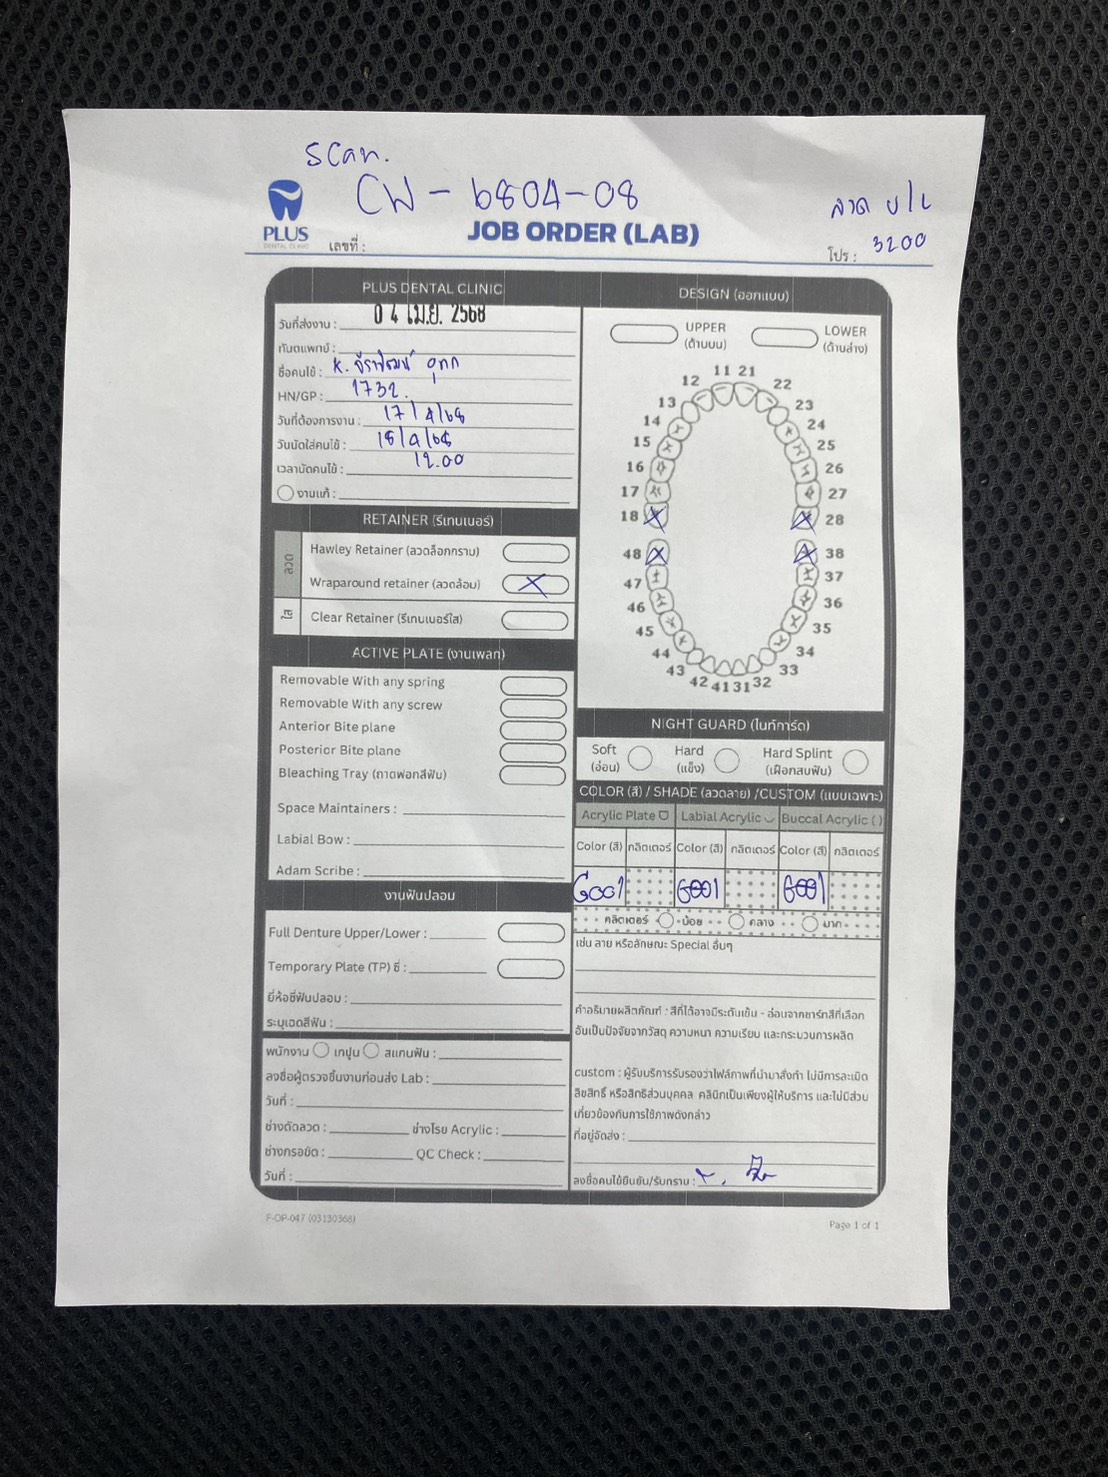 scan.
CW - 6804-08
ลวด U/L
PLUS
DENTAL CLINIC
เลขที่ :
JOB ORDER (LAB)
โปร : 3200
PLUS DENTAL CLINIC
วันที่ส่งงาน : 0 4 เม.ย. 2568
ทันตแพทย์ :
ชื่อคนไข้ : K.
HN/GP : 1732.
วันที่ต้องการงาน : 17/4/68
วันนัดใส่คนไข้ : 18/4/68
เวลานัดคนไข้ : 12.00
งานแก้ :
RETAINER (รีเทนเนอร์)
ลวด
Hawley Retainer (ลวดล็อกกราม)
Wraparound retainer (ลวดล้อม) X
ใส
Clear Retainer (รีเทนเนอร์ใส)
ACTIVE PLATE (งานเพลท)
Removable With any spring
Removable With any screw
Anterior Bite plane
Posterior Bite plane
Bleaching Tray (ถาดฟอกสีฟัน)
Space Maintainers :
Labial Bow :
Adam Scribe :
งานฟันปลอม
Full Denture Upper/Lower :
Temporary Plate (TP) ซี่ :
ยี่ห้อซี่ฟันปลอม :
ระบุเฉดสีฟัน :
พนักงาน เทปูน สแกนฟัน :
ลงชื่อผู้ตรวจชิ้นงานก่อนส่ง Lab :
วันที่ :
ช่างดัดลวด : ช่างโรย Acrylic :
ช่างกรอขัด : QC Check :
วันที่ :
DESIGN (ออกแบบ)
UPPER (ด้านบน)
LOWER (ด้านล่าง)
11 21
12 22
13 23
14 24
15 25
16 26
17 27
18 28
48 38
47 37
46 36
45 35
44 34
43 33
42 41 31 32
NIGHT GUARD (ไนท์การ์ด)
Soft (อ่อน)
Hard (แข็ง)
Hard Splint (เฝือกสบฟัน)
COLOR (สี) / SHADE (ลวดลาย) /CUSTOM (แบบเฉพาะ)
Acrylic Plate Labial Acrylic Buccal Acrylic ( )
Color (สี) กลิตเตอร์ Color (สี) กลิตเตอร์ Color (สี) กลิตเตอร์
G001 G001 G001
กลิตเตอร์ น้อย กลาง มาก
เช่น ลาย หรือลักษณะ Special อื่นๆ
คำอธิบายผลิตภัณฑ์ : สีที่ได้อาจมีระดับเข้ม - อ่อนจากชาร์ทสีที่เลือก
อันเป็นปัจจัยจากวัสดุ ความหนา ความเรียบ และกระบวนการผลิต
custom : ผู้รับบริการรับรองว่าไฟล์ภาพที่นำมาสั่งทำ ไม่มีการละเมิด
ลิขสิทธิ์ หรือสิทธิส่วนบุคคล คลินิกเป็นเพียงผู้ให้บริการ และไม่มีส่วน
เกี่ยวข้องกับการใช้ภาพดังกล่าว
ที่อยู่จัดส่ง :
ลงชื่อคนไข้ยืนยัน/รับทราบ :
F-OP-047 (03130368)
Page 1 of 1